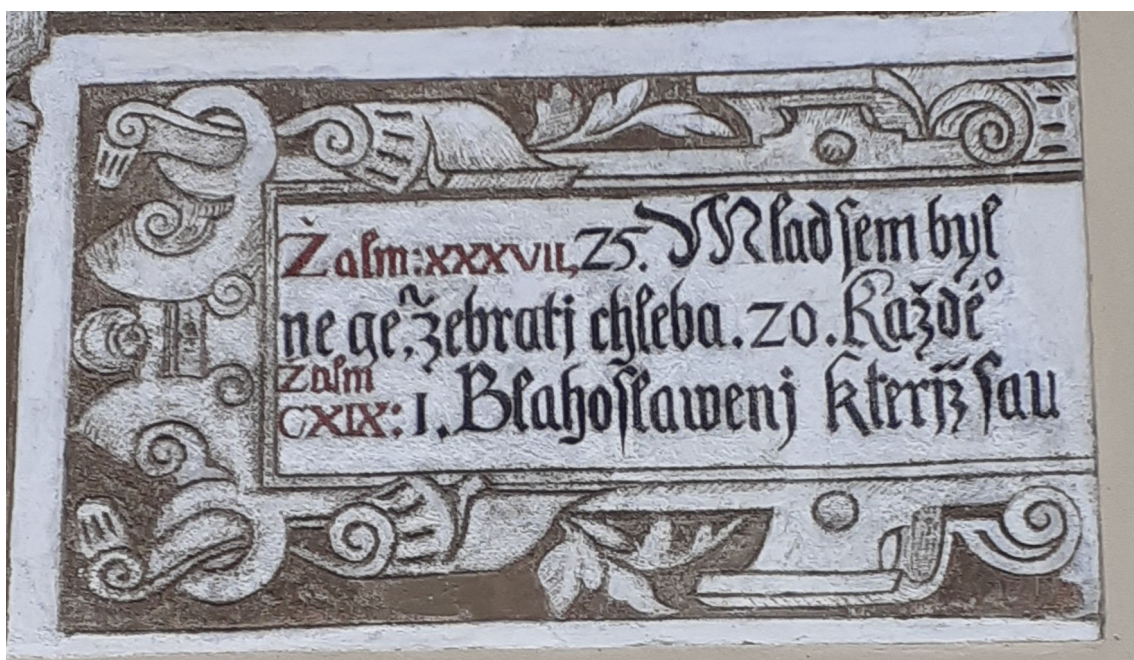 Žalm: XXXVII, 25. Mlad sem byl
ne ge, žebratj chleba. 20. Každé°
Žalm
CXIX: 1. Blahoslawenj kterjž sau